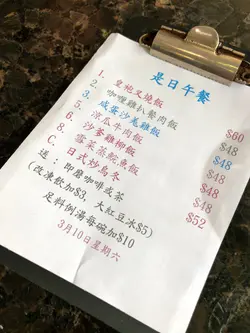 是日午餐
1. 皇牝叉燒飯 $60
2. 咖喱雞扒餐肉飯 $48
3. 咸蛋沙姜雞飯 $48
5. 涼瓜牛肉飯 $48
6. 沙爹雞柳飯 $48
8. 雪菜蒸鯇魚飯 $48
C. 日式炒烏冬 $52
送：即磨咖啡或茶
(改凍飲加$3, 大紅豆冰$5)
足料例湯每碗加$10
3月10日星期六